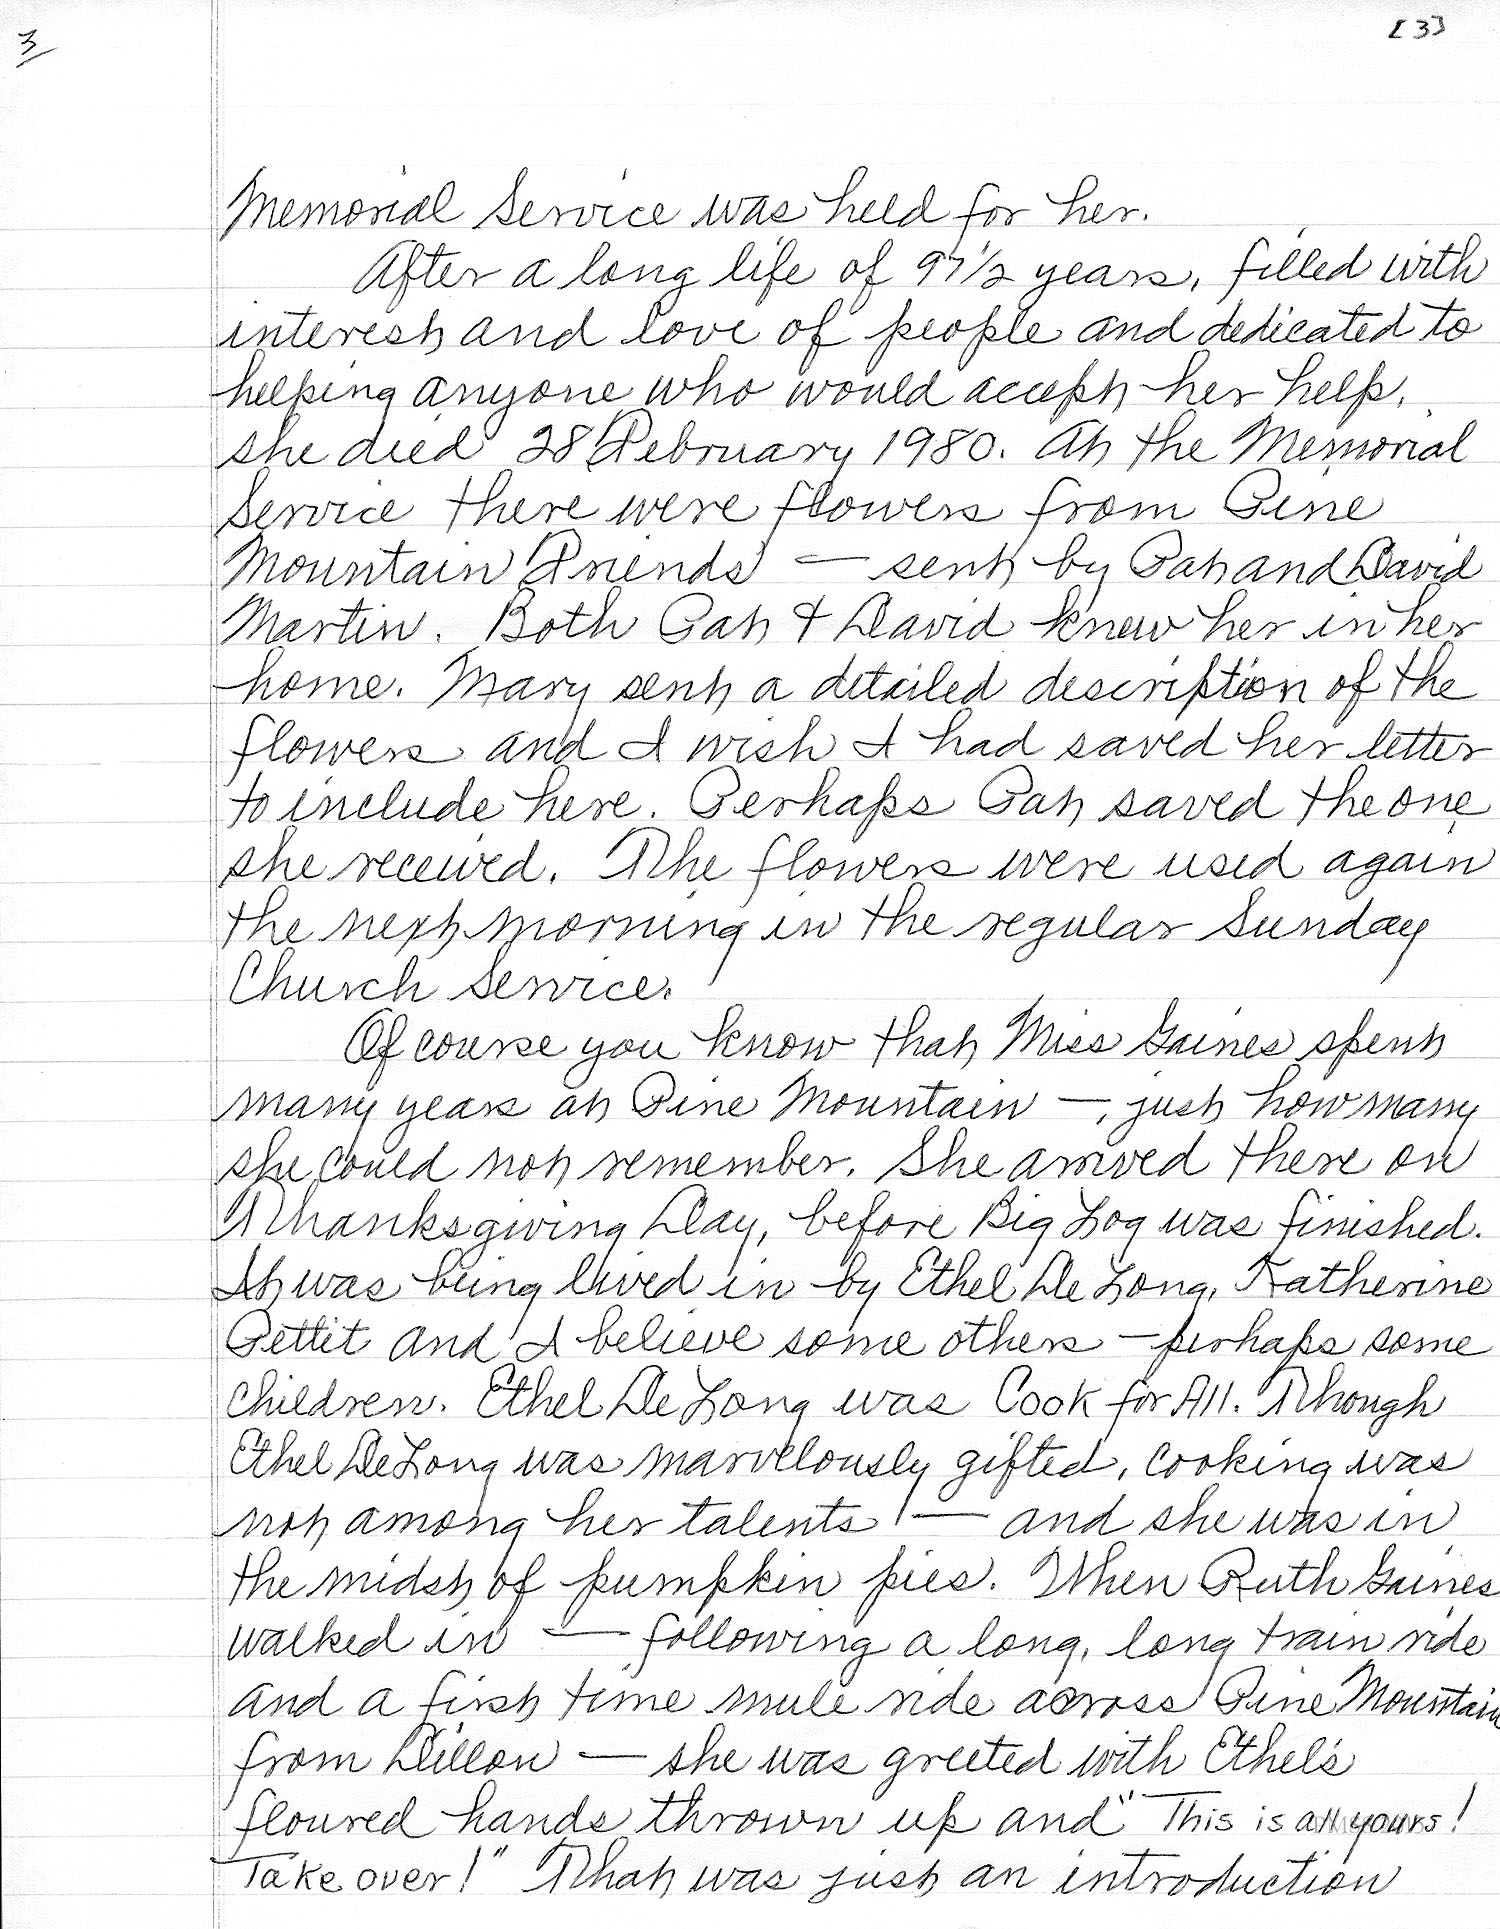 3
[3]
Memorial Service was held for her.
After a long life of 97 1/2 years, filled with
interest and love of people and dedicated to
helping anyone who would accept her help,
she died 28 February 1980. At the Memorial
Service there were flowers from Pine
Mountain Friends — sent by Pat and David
Martin. Both Pat & David knew her in her
home. Mary sent a detailed description of the
flowers and I wish I had saved her letter
to include here. Perhaps Pat saved the one
she received. The flowers were used again
the next morning in the regular Sunday
Church Service.
Of course you know that Miss Gaines spent
many years at Pine Mountain —, just how many
she could not remember. She arrived there on
Thanksgiving Day, before Big Log was finished.
It was being lived in by Ethel De Long, Katherine
Pettit and I believe some others — perhaps some
children. Ethel De Long was Cook for All. Though
Ethel De Long was marvelously gifted, cooking was
not among her talents — and she was in
the midst of pumpkin pies. When Ruth Gaines
walked in — following a long, long train ride
and a first time mule ride across Pine Mountain
from Dillon — she was greeted with Ethel's
floured hands thrown up and "This is all yours!
Take over!" That was just an introduction